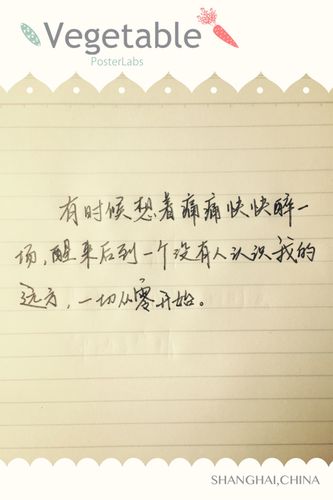 Vegetable
PosterLabs
有时候想着痛痛快快醉一
场,醒来后到一个没有人认识我的
远方,一切从零开始。
SHANGHAI,CHINA